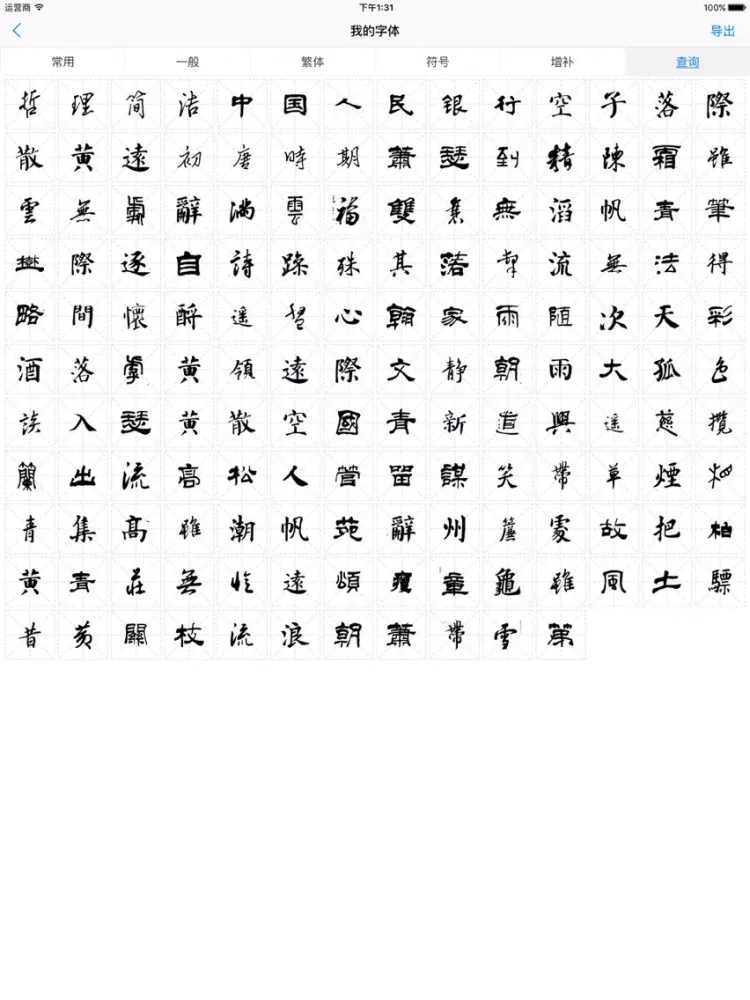 运营商 下午1:31 100%
我的字体 导出
常用 一般 繁体 符号 增补 查询
哲 理 简 洁 中 国 人 民 银 行 空 子 落 際
散 黄 遠 初 唐 時 期 蕭 瑟 到 精 陳 霜 雖
雲 無 辭 滿 雲 福 雙 無 滔 帆 青 筆
際 逐 自 詩 殊 其 落 幫 流 無 法 得
略 間 懷 醉 遥 心 翰 家 雨 陋 次 天 彩
酒 落 黄 領 遠 際 文 静 朝 雨 大 孤 色
談 入 瑟 黄 散 空 國 青 新 道 興 遥 慈 攬
蘭 出 流 高 松 人 管 留 謀 笑 帶 草 煙
青 集 高 雖 潮 帆 苑 辭 州 簾 處 故 把 柏
黄 青 莊 無 遠 頌 章 龜 雖 風 土 驃
昔 黄 關 枝 流 浪 朝 蕭 帶 雪 第